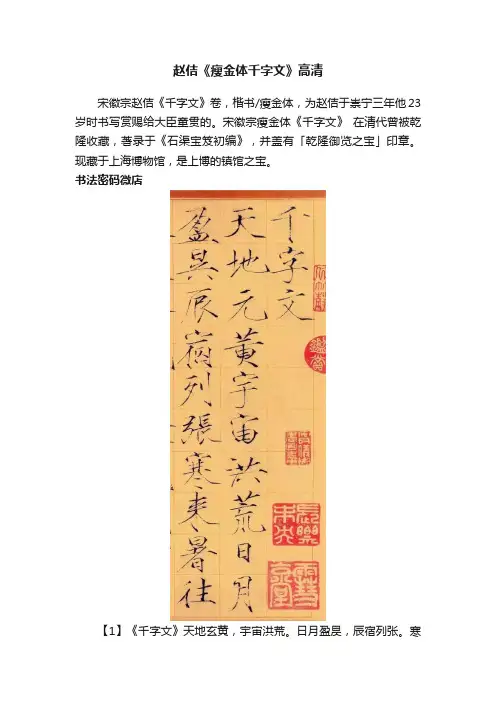 赵佶《瘦金体千字文》高清
宋徽宗赵佶《千字文》卷，楷书/瘦金体，为赵佶于崇宁三年他23
岁时书写赏赐给大臣童贯的。宋徽宗瘦金体《千字文》 在清代曾被乾
隆收藏，著录于《石渠宝笈初编》，并盖有「乾隆御览之宝」印章。
现藏于上海博物馆，是上博的镇馆之宝。
书法密码微店
千字文
天地元黃宇宙洪荒日月
盈昃辰宿列張寒來暑往
長樂
未央
【1】《千字文》天地玄黄，宇宙洪荒。日月盈昃，辰宿列张。寒